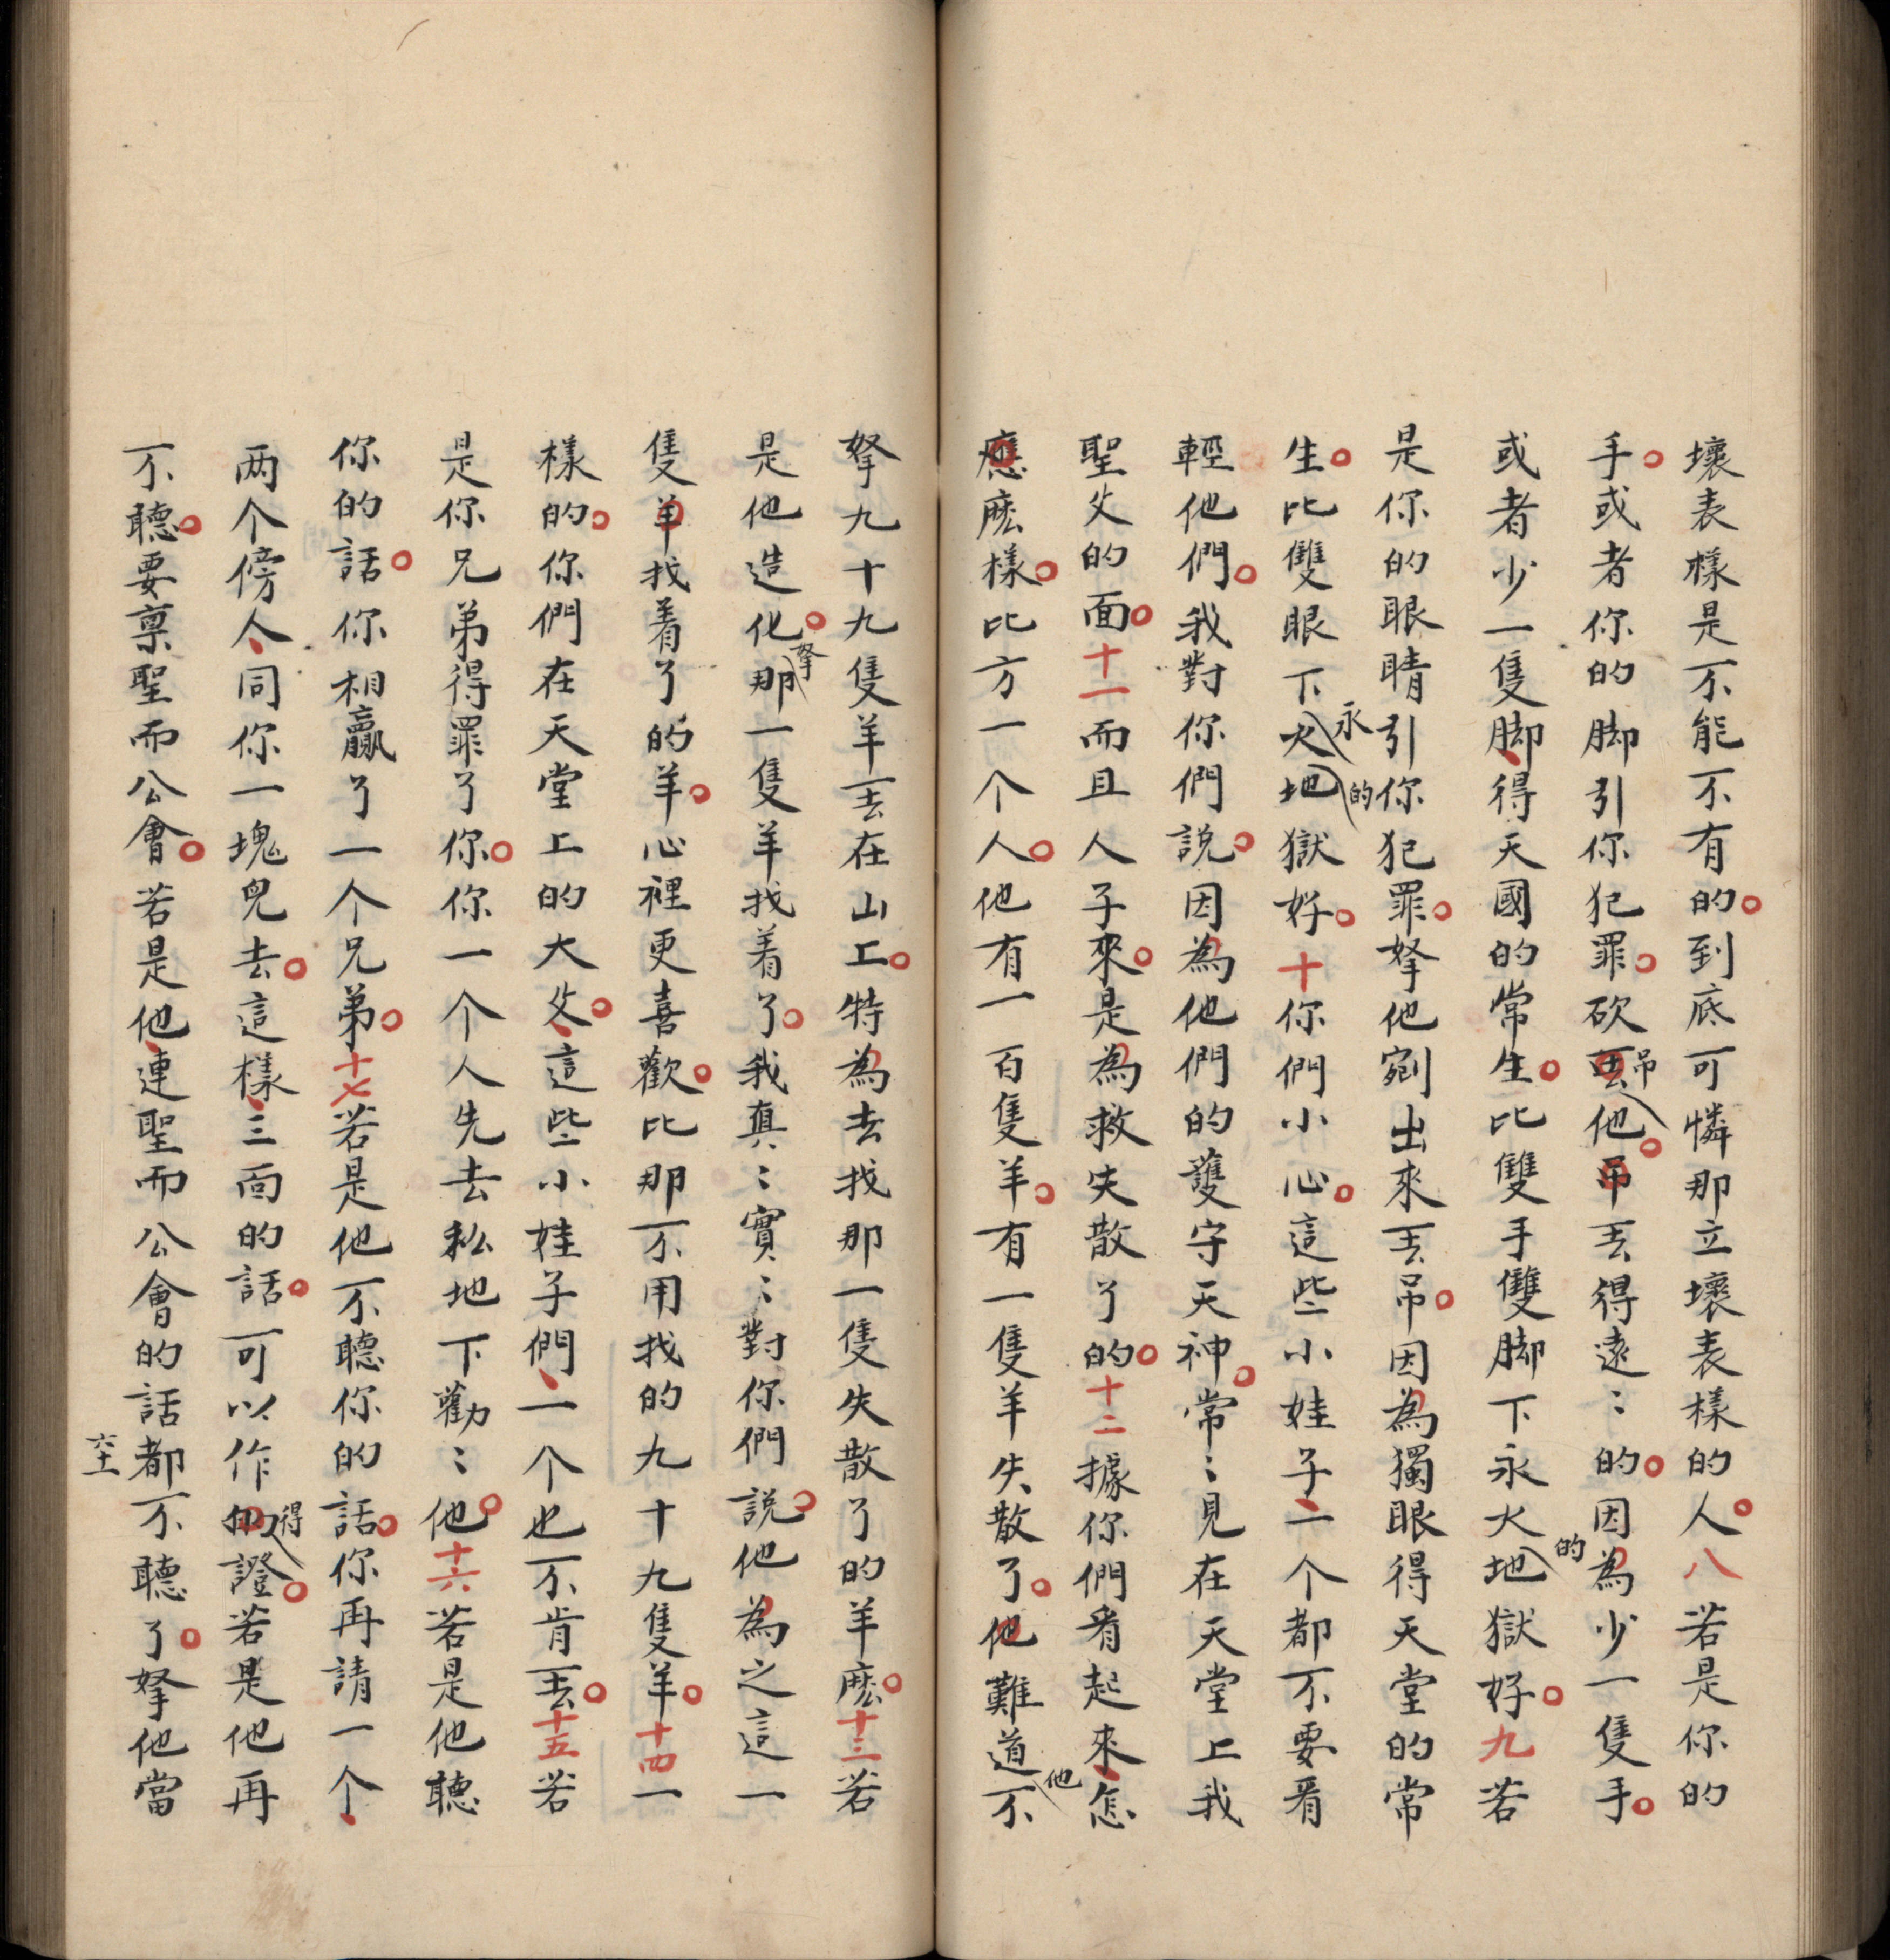 壞表樣是不能不有的到底可憐那立壞表樣的人八若是你的
手或者你的脚引你犯罪砍丟吊他吊丟得遠〻的因為少一隻手
或者少一隻脚得天國的常生比雙手雙脚下永火的地獄好九若
是你的眼睛引你犯罪拏他剜出來丟吊因為獨眼得天堂的常
生比雙眼下永火的地獄好十你們小心這些小娃子一个都不要看
輕他們我對你們說因為他們的護守天神常〻見在天堂上我
聖父的面十一而且人子來是為救失散了的十二據你們看起來怎
應麽樣比方一个人他有一百隻羊有一隻羊失散了他難道他不
拏九十九隻羊丟在山上特為去找那一隻失散了的羊麽十三若
是他造化拏那一隻羊找着了我真〻實〻對你們說他為之這一
隻羊找着了的羊心裡更喜歡比那不用找的九十九隻羊十四一
樣的你們在天堂上的大父這些小娃子們一个也不肯丟十五若
是你兄弟得罪了你你一个人先去私地下勸〻他十六若是他聽
你的話你相贏了一个兄弟十七若是他不聽你的話你再請一个
两个傍人同你一塊兒去這樣三面的話可以作得證若是他再
不聽要禀聖而公會若是他連聖而公會的話都不聽了拏他當
六十一